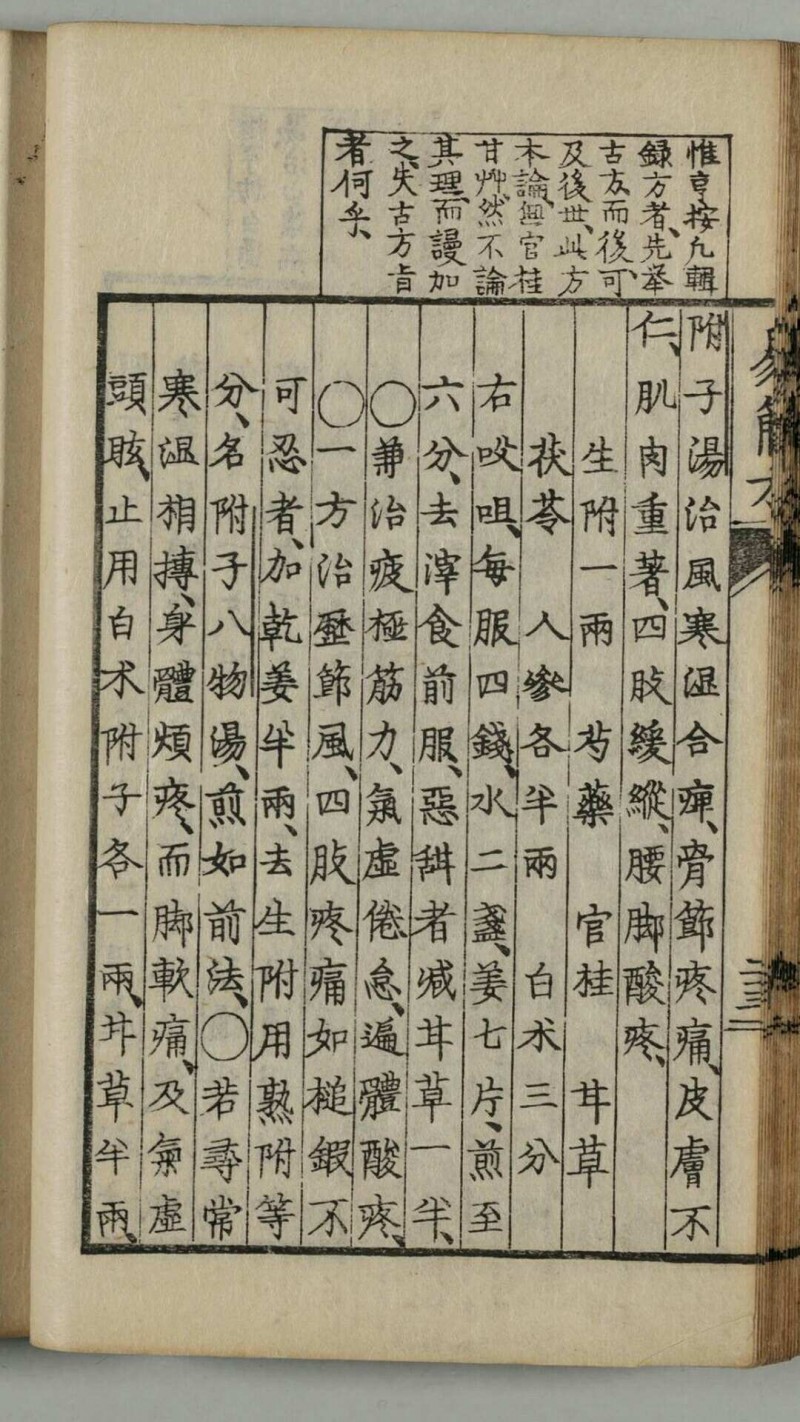 惟亨按凢輯
録方者、先举
古方而後、可
及後世、此方
本論、無官桂
甘艸、然不論
其理、而謾加
之、失古方旨
者何乎、
附子湯治風寒湿合痺、骨節疼痛、皮膚不
仁、肌肉重著、四肢緩縱、腰脚酸疼、
生附一兩　芍藥　官桂　甘草
茯苓　人參各半兩　白朮三分
右㕮咀、每服四錢、水二盞、姜七片、煎至
六分、去滓食前服、惡甜者减甘草一半、
○兼治疲極筋力、氣虛倦怠、遍體酸疼、
○一方治歷節風、四肢疼痛如槌鍛不
可忍者、加乾姜半兩、去生附用熟附等
分、名附子八物湯、煎如前法、○若尋常
寒湿相搏、身體煩疼、而脚軟痛、及氣虛
頭眩、止用白朮附子各一兩、甘草半兩、
易簡方